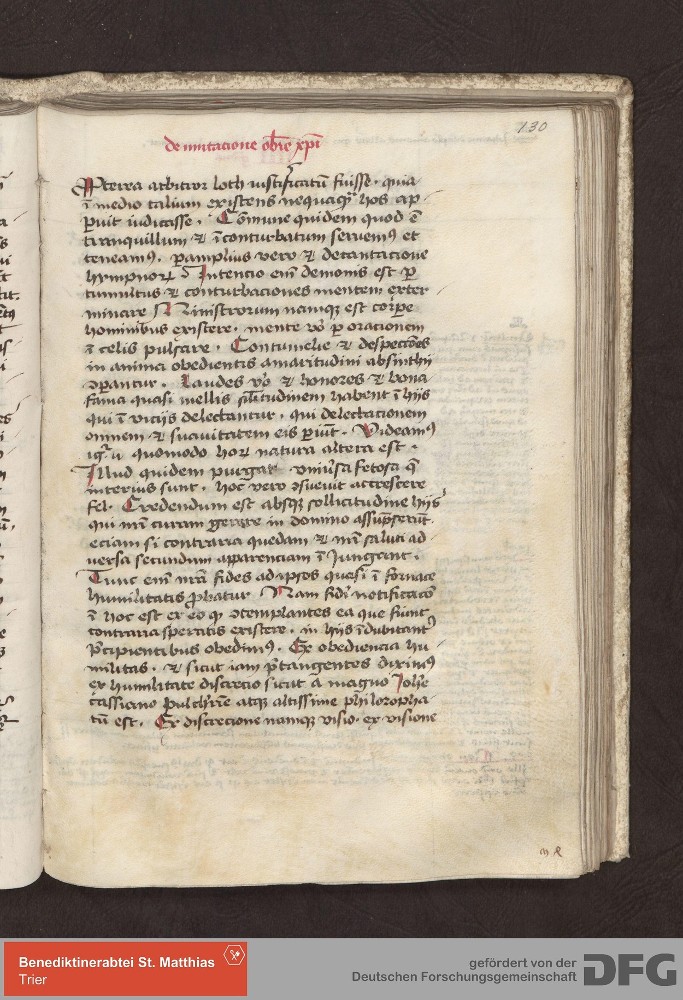 130
de imitacione obīe xp̄i
Pterea arbitror loth iustificatū fuisse · quia
ī medio talium existens nequaqᷓ hos ap
puit iudicasse · Cōmune quidem quod ē
tranquillum ⁊ īconturbatum seruemꝰ et
teneamꝰ · pamplius vero ⁊ decantacione
hympnoꝝ · Intencio eīm demonis est ꝑ
tumultus ⁊ conturbaciones mentem exter
minare Ministrorum namqꝫ est corꝑe
hominibus existere · mente vo ꝑ oracionem
ī celis pulsare · Contumelie ⁊ despectōes
in anima obedientis amaritudini absinthii
ꝯpantur · Laudes vo ⁊ honores ⁊ bona
fama quasi mellis silitudinem habent ī hiis
qui ī viciis delectantur · qui delectacionem
omnem ⁊ suauitatem eis piūt · Videamꝰ
quomodo hoꝝ natura altera est ·
Illud quidem purgat vniūsa fetosa q̄
interius sunt · hoc vero ꝯsueuit accrescere
fel · Credendum est absqꝫ sollicitudine hiis
qui nrā curam gerere in domino assūpserūt ·
eciam si contraria quedam ⁊ nrā saluti ad
uersa secundum apparenciam ī Jungant ·
Tunc eīm nrā fides ad ipsos quasi ī fornace
humilitatis ꝓbatur · Nam fidi notificacō
ī hoc est ex eo qꝫ ꝯtemplantes ea que fiunt
contraria speratis existere · in hiis īdubitant
p̄cipientibus obedimꝰ · Ex obediencia hu
militas · ⁊ sicut iam p̄tangentes diximꝰ
ex humilitate discrecio sicut a magno Johē
cassiano pulchrīe atqꝫ altissime philozopha
tū est · Ex discrecione namqꝫ visio · ex visione
Benediktinerabtei St. Matthias
Trier
gefördert von der
Deutschen Forschungsgemeinschaft
DFG